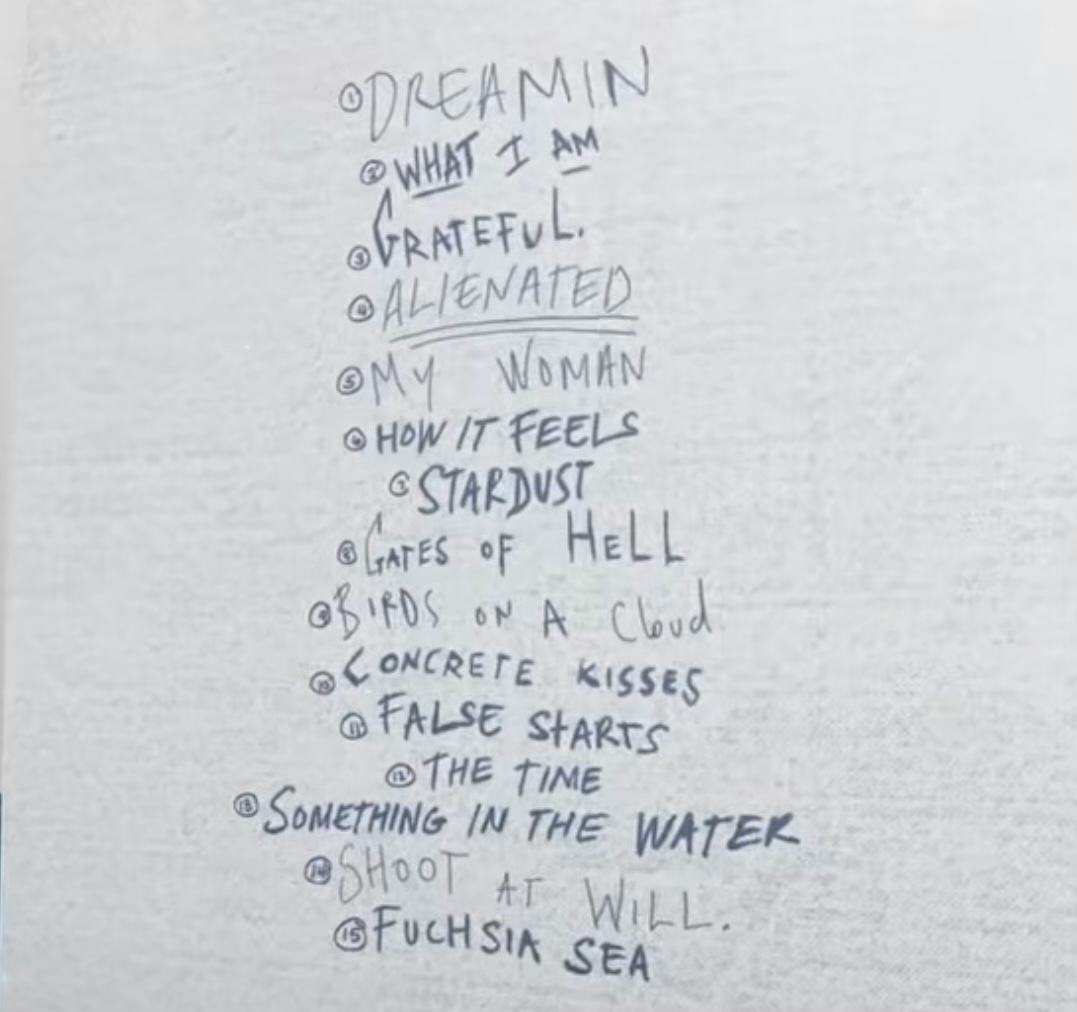 ① DREAMIN
② WHAT I AM
③ GRATEFUL.
④ ALIENATED
⑤ MY WOMAN
⑥ HOW IT FEELS
⑦ STARDUST
⑧ GATES OF HELL
⑨ BIRDS ON A Cloud
⑩ CONCRETE KISSES
⑪ FALSE STARTS
⑫ THE TIME
⑬ SOMETHING IN THE WATER
⑭ SHOOT AT WILL.
⑮ FUCHSIA SEA